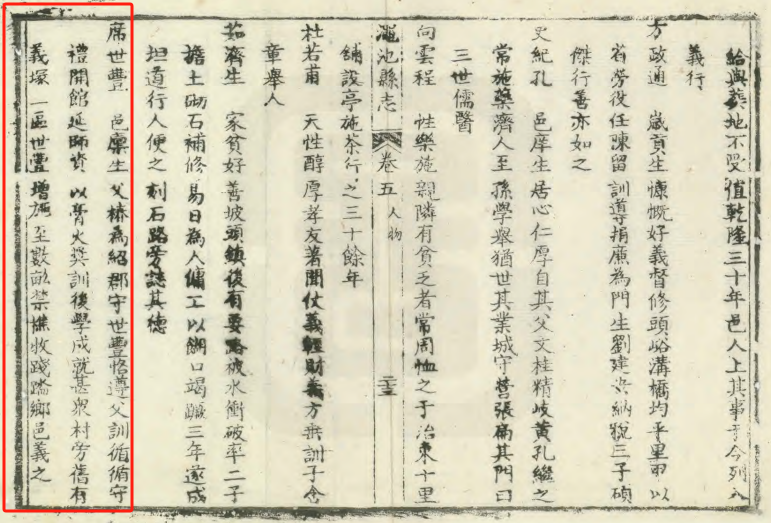 給與葬地不受值乾隆三十年邑人上其事于今列入
義行
方政通 歲貢生慷慨好義督修頭峪溝橋均平里甲以
省勞役任陳留訓導捐廉為門生劉建安納貌三子碩
傑行善亦如之
史紀孔 邑庠生居心仁厚自其父文桂精岐黃孔繼之
常施藥濟人至孫學舉猶世其業城守營張扁其門曰
三世儒醫
向雲程 性樂施親隣有貧乏者常周恤之于治東十里
澠池縣志 卷五 人物 二十三
舖設亭施茶行之三十餘年
杜若甫 天性醇厚孝友著聞仗義輕財義方垂訓子含
章舉人
茹濟生 家貧好善坡頭鎮後有要路被水衝破率二子
擔土砌石補修易日為人傭工以餬口竭蹶三年遂成
坦道行人便之刻石路旁誌其德
席世豐 邑廩生父椿為紹郡守世豐恪遵父訓循循守
禮開館延師資以膏火獎訓後學成就甚衆村旁舊有
義塚一區世豐增施至數畝禁樵牧踐踏鄉邑義之